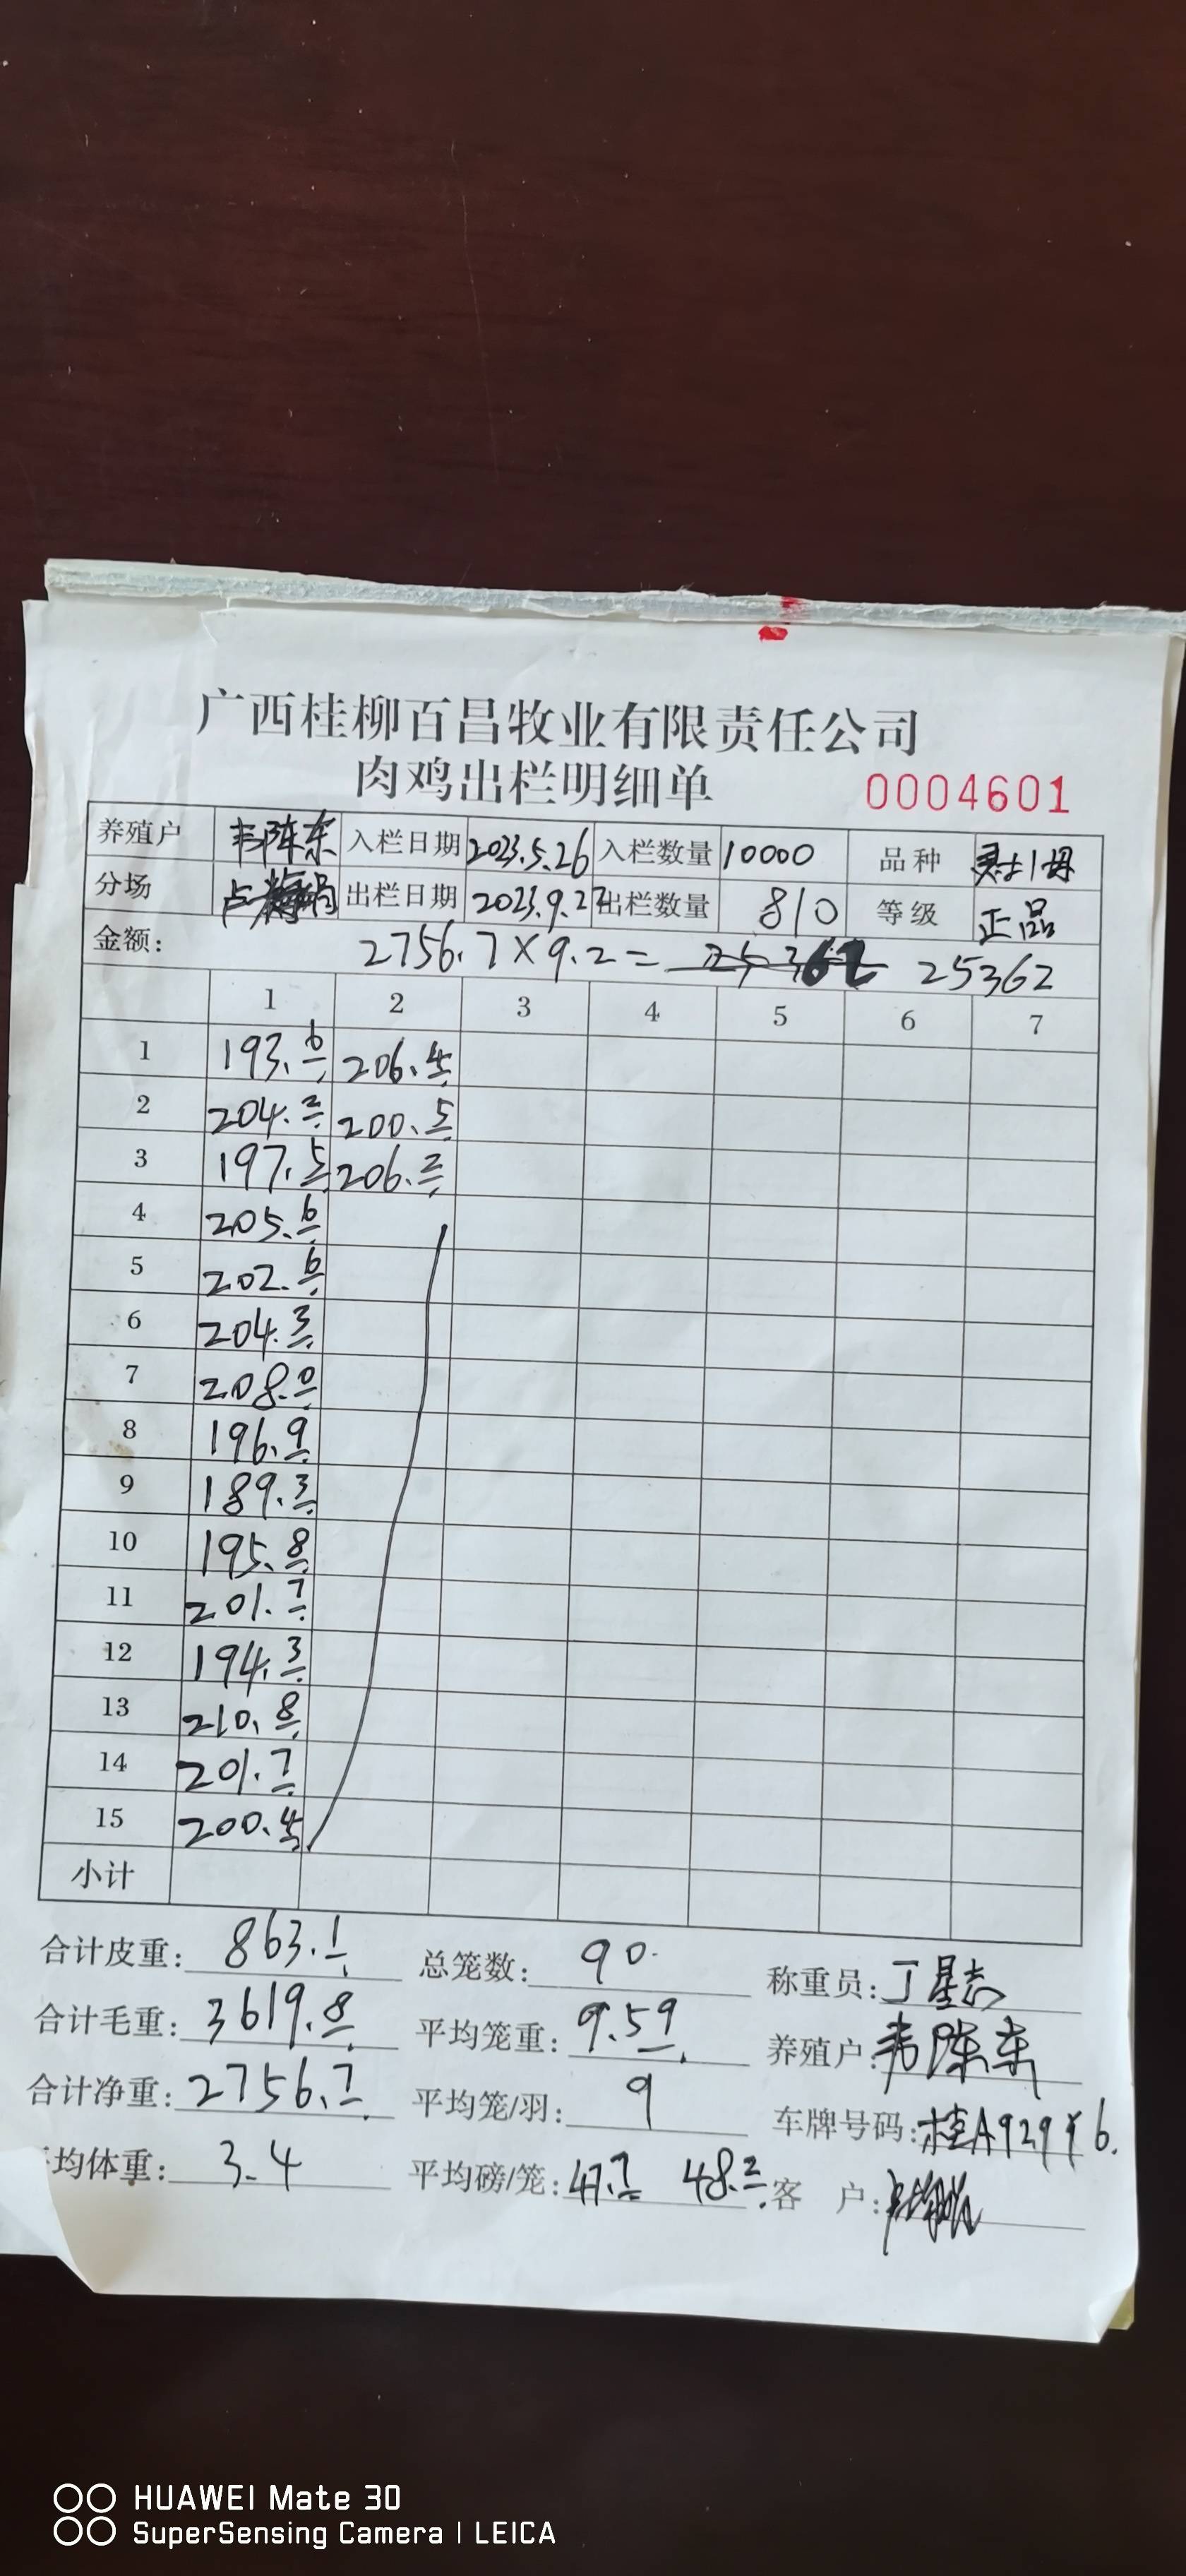 广西桂柳百昌牧业有限责任公司
肉鸡出栏明细单 0004601
养殖户 韦陈东 入栏日期 2023.5.26 入栏数量 10000 品种
分场 出栏日期 2023.9.27 出栏数量 810 等级 正品
金额: 2756.7×9.2= 25362 25362
1 2 3 4 5 6 7
1 193.6 206.4
2 204.2 200.5
3 197.5 206.2
4 205.6
5 202.6
6 204.3
7 208.0
8 196.9
9 189.3
10 195.8
11 201.7
12 194.3
13 210.8
14 201.7
15 200.4
小计
合计皮重: 863.1 总笼数: 90 称重员: 丁星志
合计毛重: 3619.8 平均笼重: 9.59 养殖户: 韦陈东
合计净重: 2756.7 平均笼/羽: 9 车牌号码:
均体重: 3.4 平均磅/笼: 47.7 48.2 客户:
HUAWEI Mate 30
SuperSensing Camera | LEICA